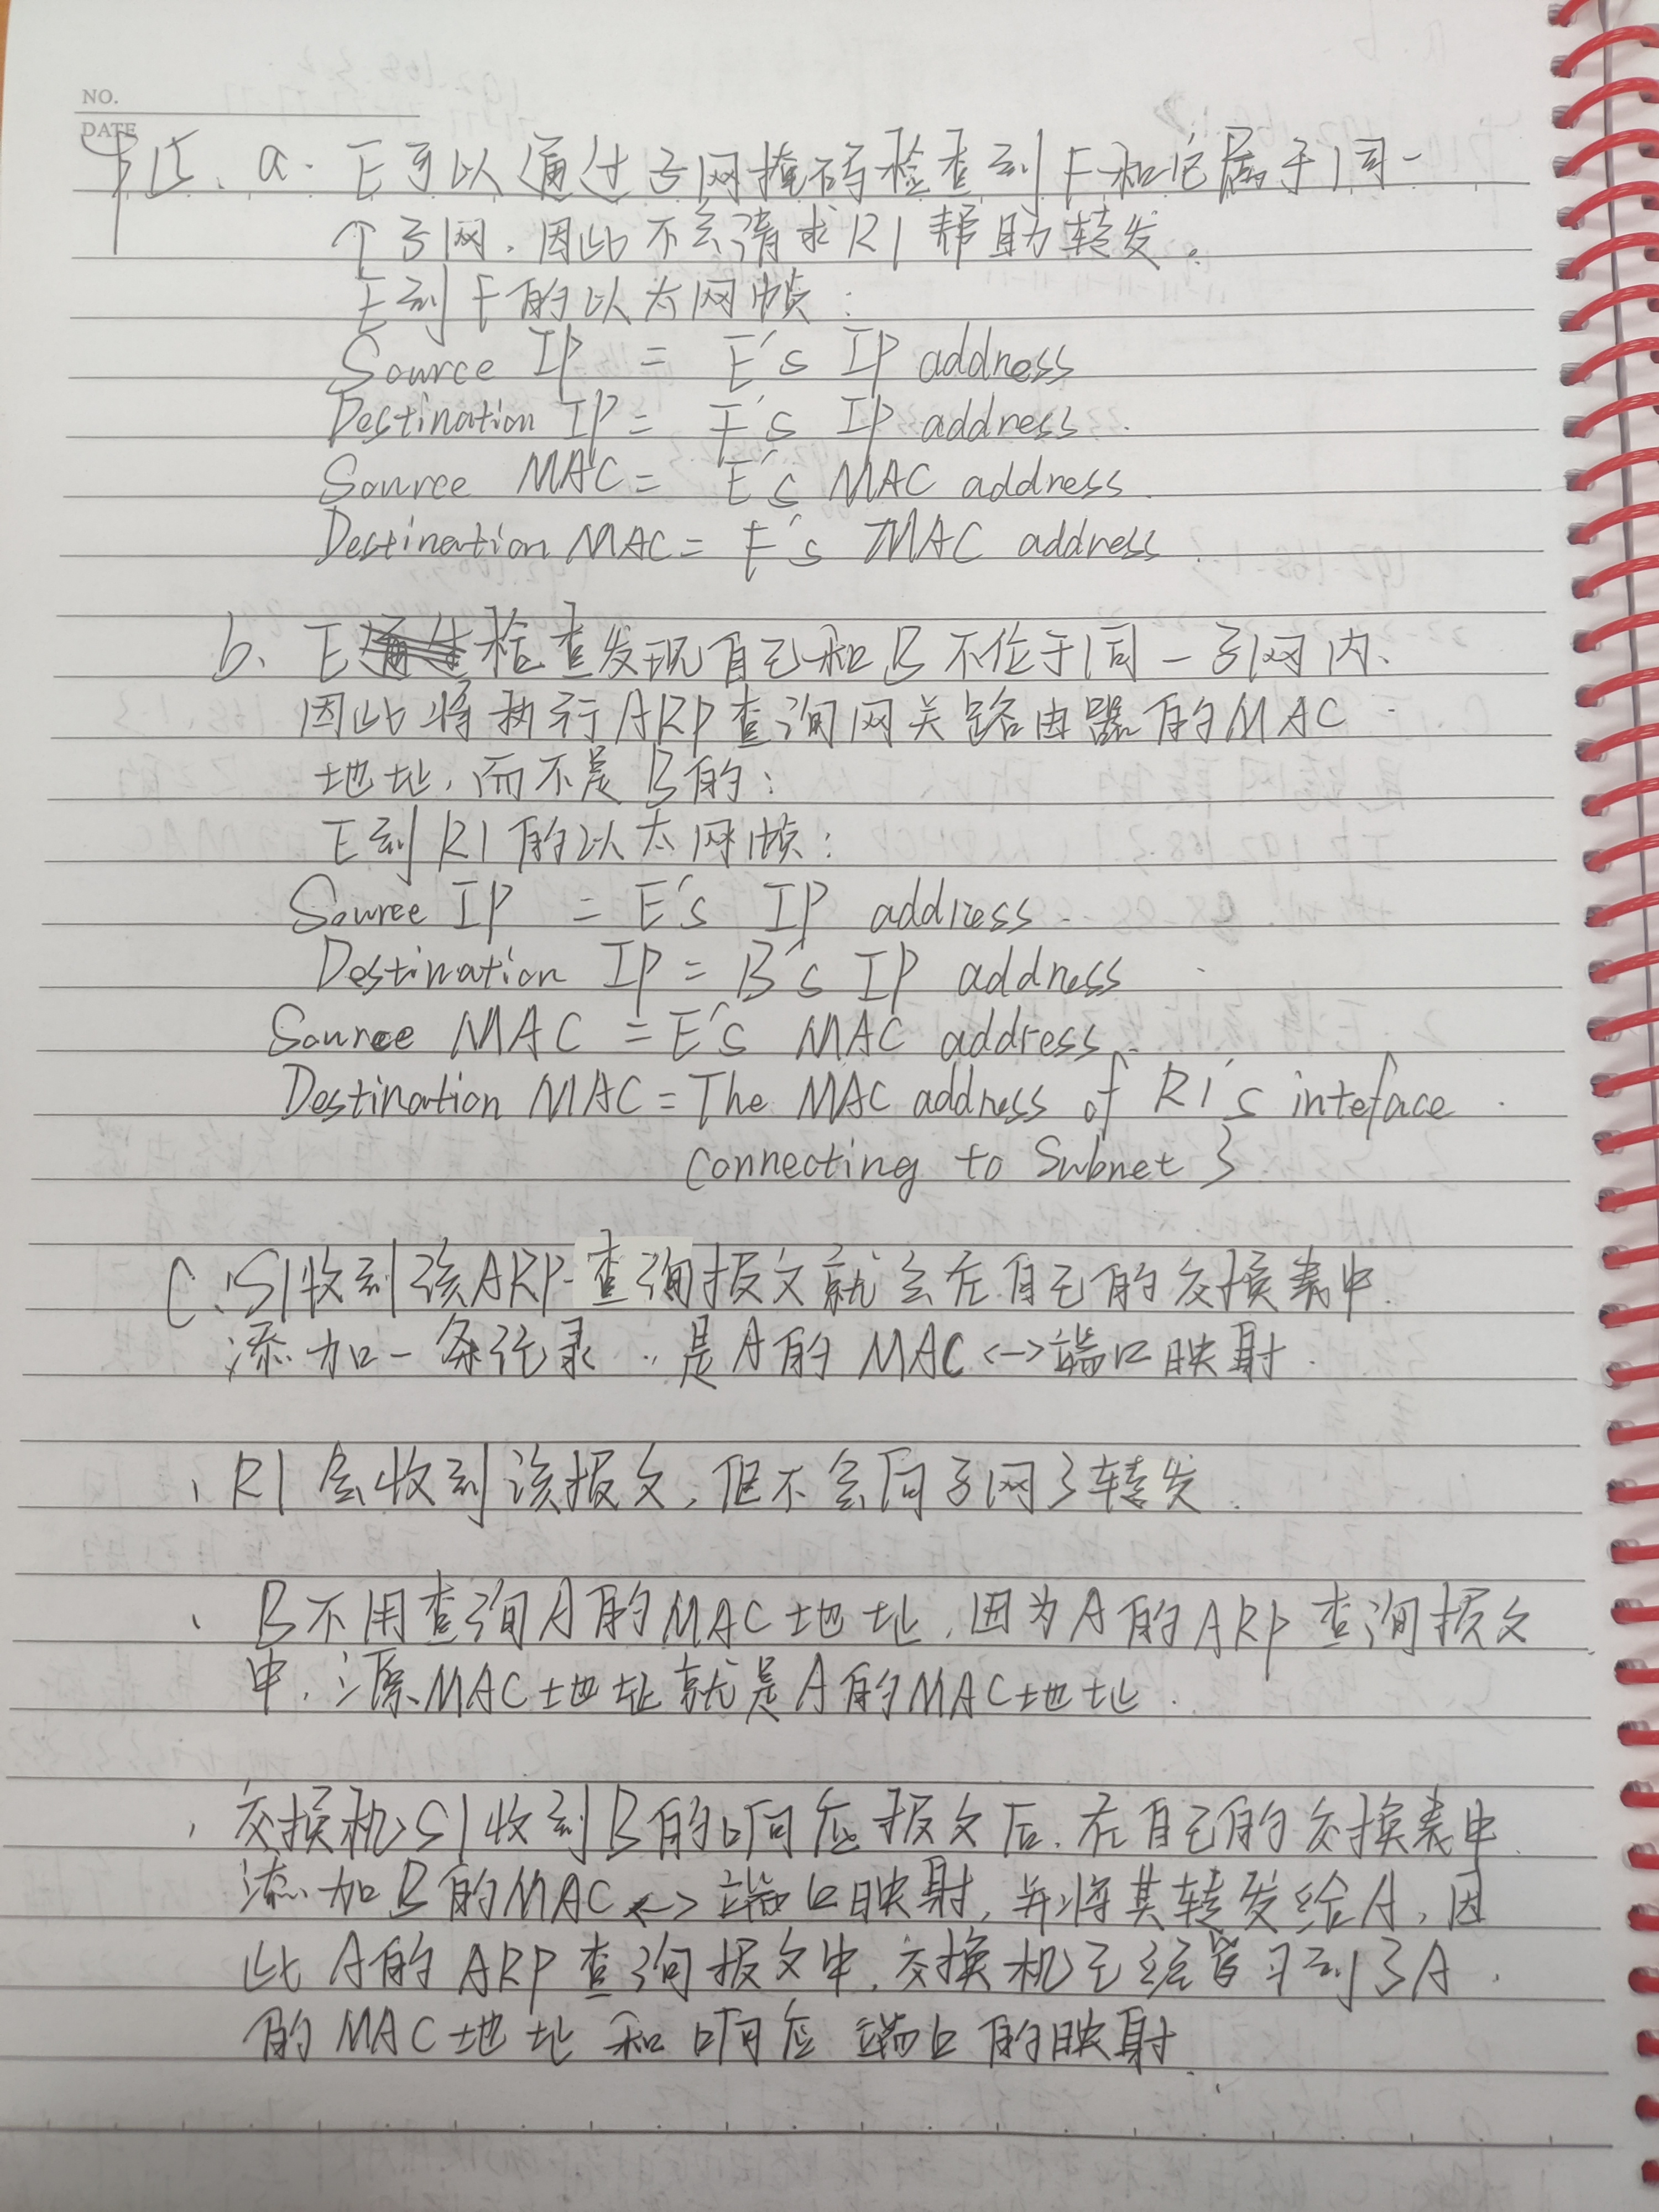 NO.
DATE
P15. a. E可以通过子网掩码检查到F和它属于同一
个子网,因此不会请求R1帮助转发。
E到F的以太网帧:
Source IP = E's IP address
Destination IP = F's IP address.
Source MAC = E's MAC address.
Destination MAC = F's MAC address.
b. E检查发现自己和B不位于同一子网内、
因此将执行ARP查询网关路由器的MAC
地址,而不是B的:
E到R1的以太网帧:
Source IP = E's IP address.
Destination IP = B's IP address
Source MAC = E's MAC address.
Destination MAC = The MAC address of R1's inteface
connecting to Subnet 3
C. S1收到该ARP查询报文就会在自己的交换表中
添加一条记录..是A的MAC<->端口映射.
、R1会收到该报文,但不会向子网3转发.
、B不用查询A的MAC地址,因为A的ARP查询报文
中,源MAC地址就是A的MAC地址.
、交换机S1收到B的响应报文后.在自己的交换表中
添加B的MAC<->端口映射,并将其转发给A,因
此A的ARP查询报文中,交换机已经学习到了A
的MAC地址和响应端口的映射.